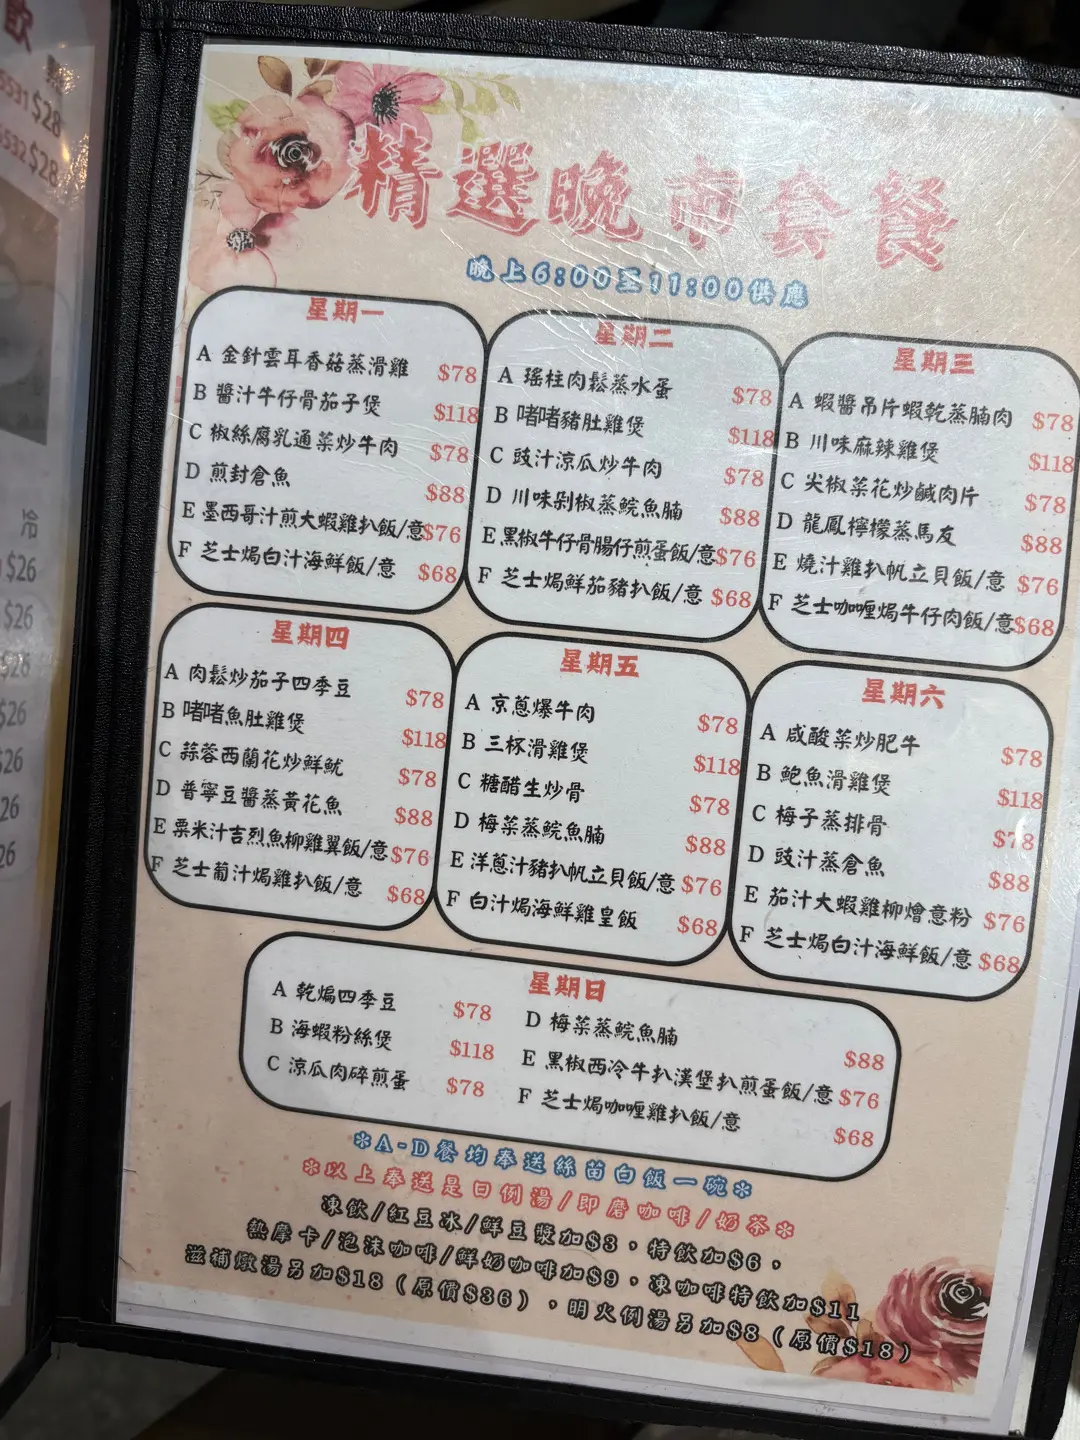 飲
6531 $28
6532 $28
$26
$26
$26
$26
$26
26
26
精選晚市套餐
晚上6:00至11:00供應
星期一
A 金針雲耳香菇蒸滑雞 $78
B 醬汁牛仔骨茄子煲 $118
C 椒絲腐乳通菜炒牛肉 $78
D 煎封倉魚 $88
E 墨西哥汁煎大蝦雞扒飯/意 $76
F 芝士焗白汁海鮮飯/意 $68
星期二
A 瑤柱肉鬆蒸水蛋 $78
B 啫啫豬肚雞煲 $118
C 豉汁涼瓜炒牛肉 $78
D 川味剁椒蒸鯇魚腩 $88
E 黑椒牛仔骨腸仔煎蛋飯/意 $76
F 芝士焗鮮茄豬扒飯/意 $68
星期三
A 蝦醬吊片蝦乾蒸腩肉 $78
B 川味麻辣雞煲 $118
C 尖椒菜花炒鹹肉片 $78
D 龍鳳檸檬蒸馬友 $88
E 燒汁雞扒帆立貝飯/意 $76
F 芝士咖喱焗牛仔肉飯/意 $68
星期四
A 肉鬆炒茄子四季豆 $78
B 啫啫魚肚雞煲 $118
C 蒜蓉西蘭花炒鮮魷 $78
D 普寧豆醬蒸黃花魚 $88
E 粟米汁吉烈魚柳雞翼飯/意 $76
F 芝士葡汁焗雞扒飯/意 $68
星期五
A 京蔥爆牛肉 $78
B 三杯滑雞煲 $118
C 糖醋生炒骨 $78
D 梅菜蒸鯇魚腩 $88
E 洋蔥汁豬扒帆立貝飯/意 $76
F 白汁焗海鮮雞皇飯 $68
星期六
A 咸酸菜炒肥牛 $78
B 鮑魚滑雞煲 $118
C 梅子蒸排骨 $78
D 豉汁蒸倉魚 $88
E 茄汁大蝦雞柳燴意粉 $76
F 芝士焗白汁海鮮飯/意 $68
星期日
A 乾煸四季豆 $78
B 海蝦粉絲煲 $118
C 涼瓜肉碎煎蛋 $78
D 梅菜蒸鯇魚腩 $88
E 黑椒西冷牛扒漢堡扒煎蛋飯/意 $76
F 芝士焗咖喱雞扒飯/意 $68
*A-D餐均奉送絲苗白飯一碗*
*以上奉送是日例湯/即磨咖啡/奶茶*
凍飲/紅豆冰/鮮豆漿加$3，特飲加$6，
熱摩卡/泡沫咖啡/鮮奶咖啡加$9，凍咖啡特飲加$11
滋補燉湯另加$18（原價$36），明火例湯另加$8（原價$18）